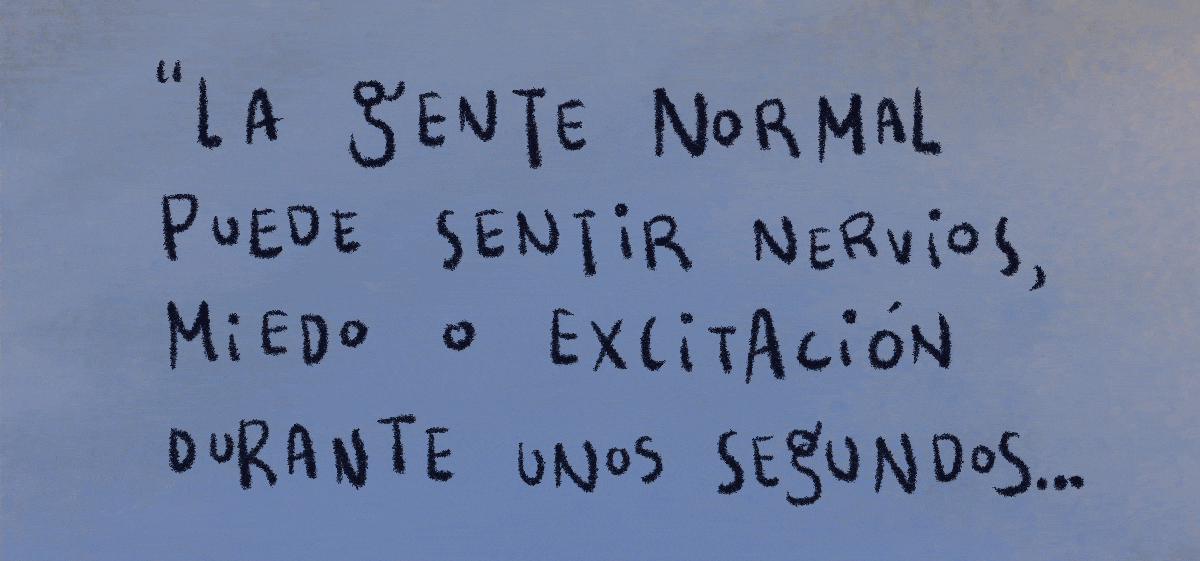 “LA gENTE NORMAL
PUEDE SENTiR NERViOS,
MiEDO O EXCiTACiÓN
DURANTE UNOS SEgUNDOS...